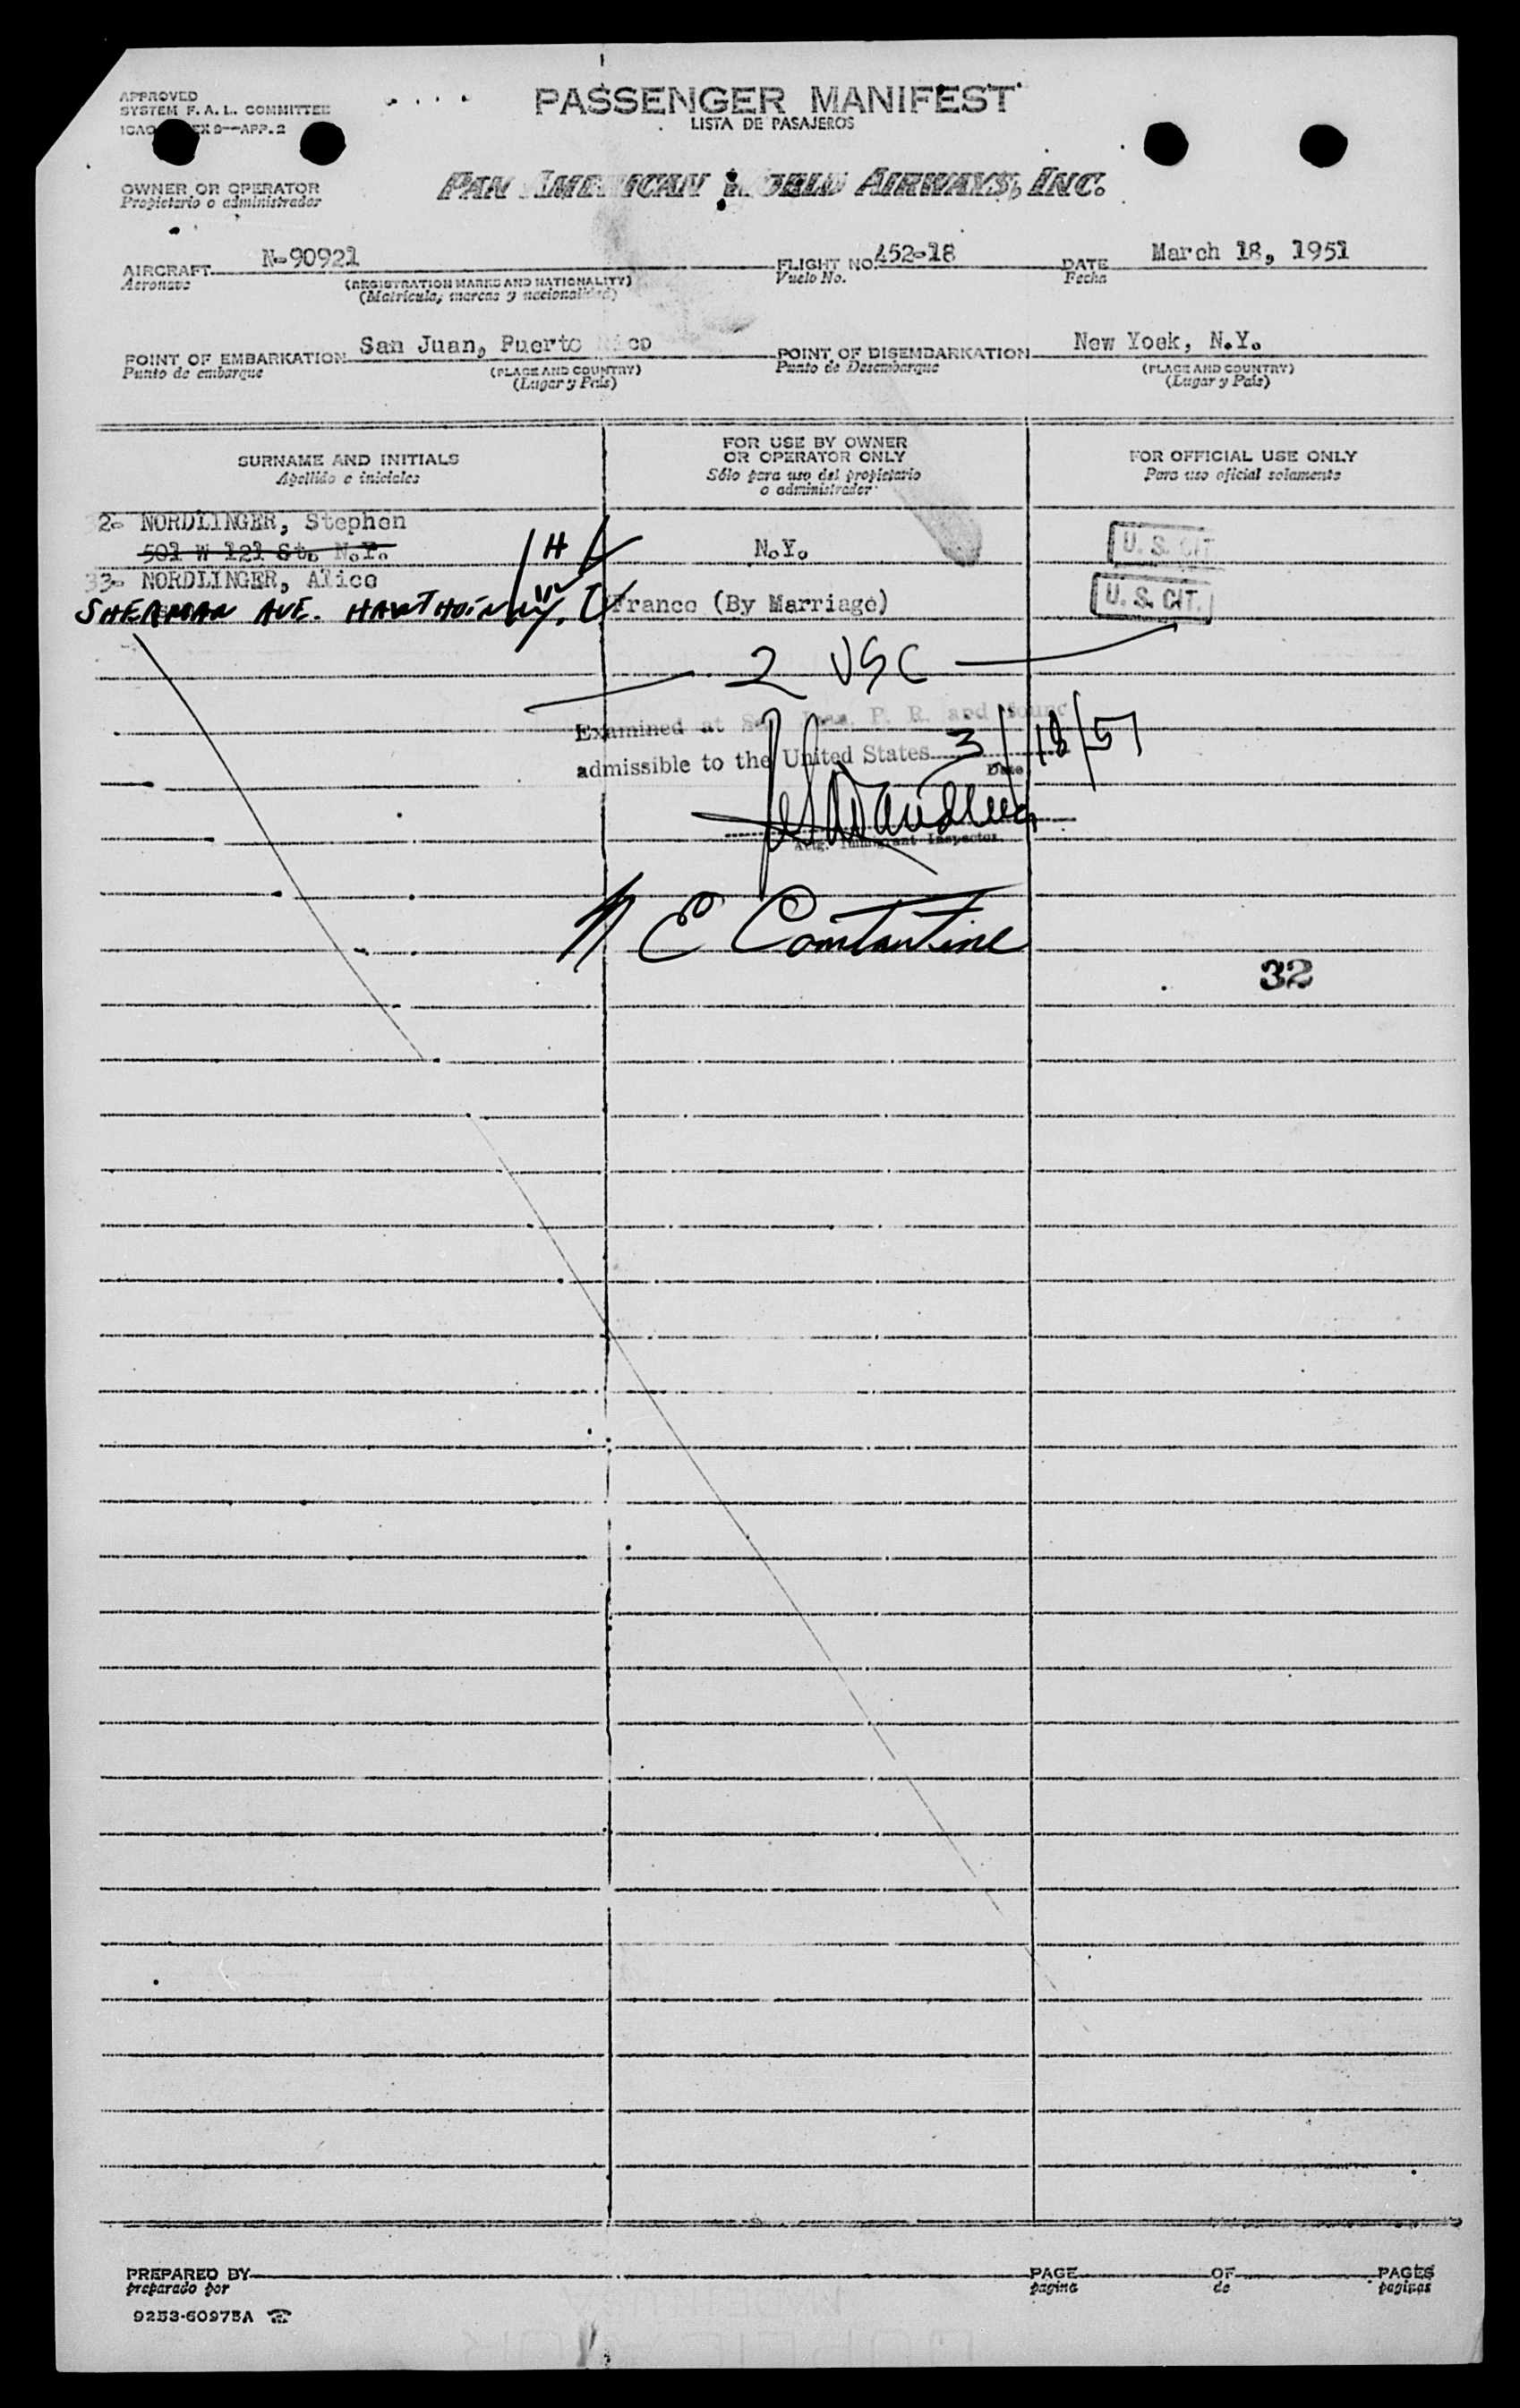 APPROVED
SYSTEM F. A. L. COMMITTEE
9—APP. 2
PASSENGER MANIFEST
LISTA DE PASAJEROS
OWNER OR OPERATOR
Propietario o administrador
PAN AMERICAN WORLD AIRWAYS, INC.
AIRCRAFT N-90921 FLIGHT NO. 452-18 DATE March 18, 1951
Aeronave (REGISTRATION MARKS AND NATIONALITY) Vuelo No. Fecha
(Matricula, marcas y nacionalidad)
POINT OF EMBARKATION San Juan, Puerto Rico POINT OF DISEMBARKATION New Yoek, N.Y.
Punto de embarque (PLACE AND COUNTRY) Punto de Desembarque (PLACE AND COUNTRY)
(Lugar y País) (Lugar y País)
SURNAME AND INITIALS FOR USE BY OWNER OR OPERATOR ONLY FOR OFFICIAL USE ONLY
Apellido e iniciales Sólo para uso del propietario o administrador Para uso oficial solamente
32- NORDLINGER, Stephen
501 W 121 St. N.Y. H N.Y. U. S. CIT
33- NORDLINGER, Alice
SHERMAN AVE. France (By Marriage) U. S. CIT.
2 USC
Examined at San Juan, P. R. and found
admissible to the United States 3/18/51
Date
Actg. Immigrant Inspector
N E Constantine
32
PREPARED BY PAGE OF PAGES
preparado por pagina de paginas
9253-60975A